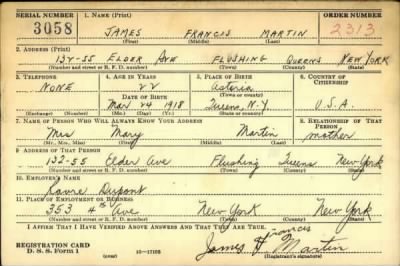 SERIAL NUMBER 1. NAME (Print) ORDER NUMBER
3058 JAMES FRANCIS MARTIN 2313
(First) (Middle) (Last)
2. ADDRESS (Print)
132-55 ELDER AVE FLUSHING QUEENS NEW YORK
(Number and street or R. F. D. number) (Town) (County) (State)
3. TELEPHONE 4. AGE IN YEARS 5. PLACE OF BIRTH 6. COUNTRY OF CITIZENSHIP
NONE 22 Astoria
DATE OF BIRTH (Town or county)
Mar 24 1918 Queens, N.Y. U.S.A.
(Mo.) (Day) (Yr.) (State or country)
7. NAME OF PERSON WHO WILL ALWAYS KNOW YOUR ADDRESS 8. RELATIONSHIP OF THAT PERSON
Mrs Mary Martin mother
(Mr., Mrs., Miss) (First) (Middle) (Last)
9. ADDRESS OF THAT PERSON
132-55 Elder Ave Flushing Queens New York
(Number and street or R. F. D. number) (Town) (County) (State)
10. EMPLOYER'S NAME
Dupont
11. PLACE OF EMPLOYMENT OR BUSINESS
353 4th Ave New York New York
(Number and street or R. F. D. number) (Town) (County) (State)
I AFFIRM THAT I HAVE VERIFIED ABOVE ANSWERS AND THAT THEY ARE TRUE.
REGISTRATION CARD James Francis Martin
D. S. S. Form 1 (over) 16—17105 (Registrant's signature)